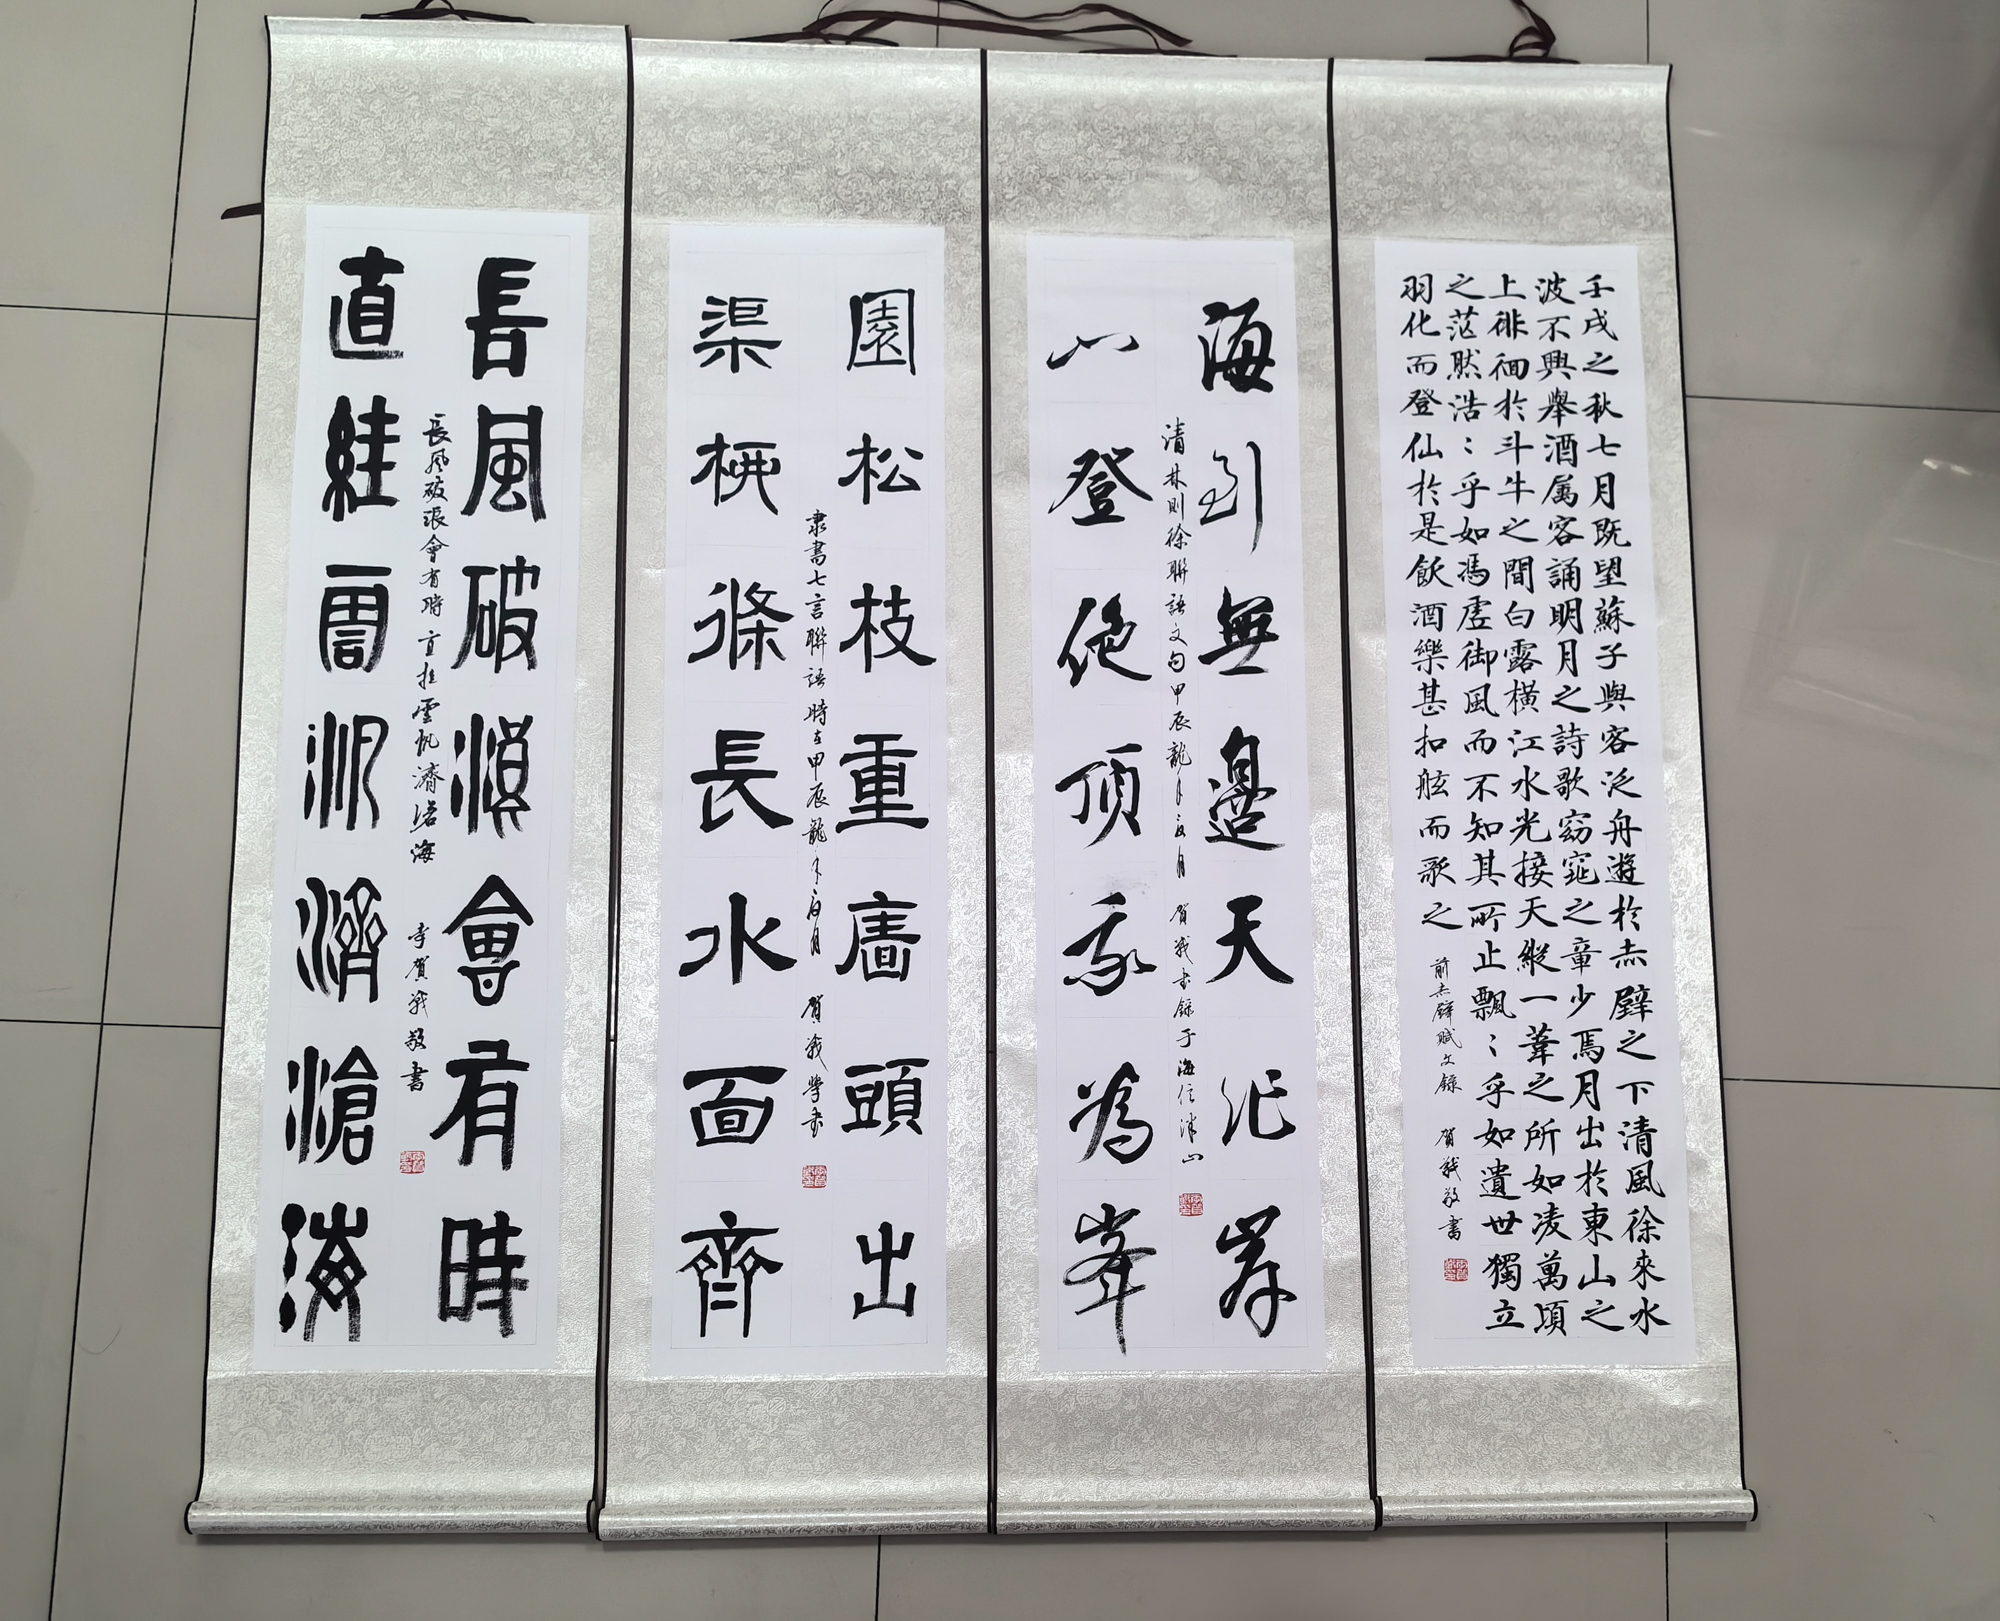 壬戌之秋七月既望蘇子與客泛舟遊於赤壁之下清風徐來水
波不興舉酒属客誦明月之詩歌窈窕之章少焉月出於東山之
上徘徊於斗牛之間白露橫江水光接天縱一葦之所如凌萬頃
之茫然浩:乎如馮虛御風而不知其所止飄:乎如遺世獨立
羽化而登仙於是飲酒樂甚扣舷而歌之
前赤壁賦文錄 賀戰敬書
海到無邊天作岸
山登绝顶我為峯
清林则徐聯語文句甲辰龍年夏月 賀戰書錄于海信
園松枝重廧頭出
渠柳條長水面齊
隶書七言聯語時在甲辰龍年夏月 賀戰學書
長風破浪會有時
直挂雲帆濟滄海
長風破浪會有時直挂雲帆濟滄海 李賀戰敬書